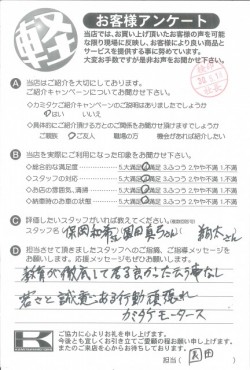 軽
お客様アンケート
当店では、お買上げ頂いたお客様の声を可能な
限り現場に反映し、お客様により良い商品と
サービスを提供する事に努めています。
大変お手数ですが是非お声をお聞かせ下さい。
A 当店はご紹介を大切にしております。
ご紹介キャンペーンについてお聞かせ下さい。
◇カミタケご紹介キャンペーンのご説明はありましたでしょうか
はい いいえ
◇具体的にご紹介頂ける方とのご関係をお聞かせ頂けますでしょうか
ご親族 ご友人 職場の方 機会があれば紹介したい
B 当店を実際にご利用になった印象をお聞かせ下さい。
◇総合的な満足度 5.大満足 4.満足 3.ふつう 2.やや不満 1.不満
◇スタッフの対応 5.大満足 4.満足 3.ふつう 2.やや不満 1.不満
◇お店の雰囲気、清掃 5.大満足 4.満足 3.ふつう 2.やや不満 1.不満
◇納車時のお車の状態 5.大満足 4.満足 3.ふつう 2.やや不満 1.不満
C 評価したいスタッフがいれば教えてください。
スタッフ名
D 担当させて頂きましたスタッフへのご指摘、ご伝達メッセージを
お願いします。応援メッセージもぜひお願いします。
カミタケモータース
K
ご協力に心よりお礼を申し上げます。
今後とも宜しくお引き立てご愛顧の程お願い申し上げます。
またのご来店を心からお待ちしております。
担当（ ）